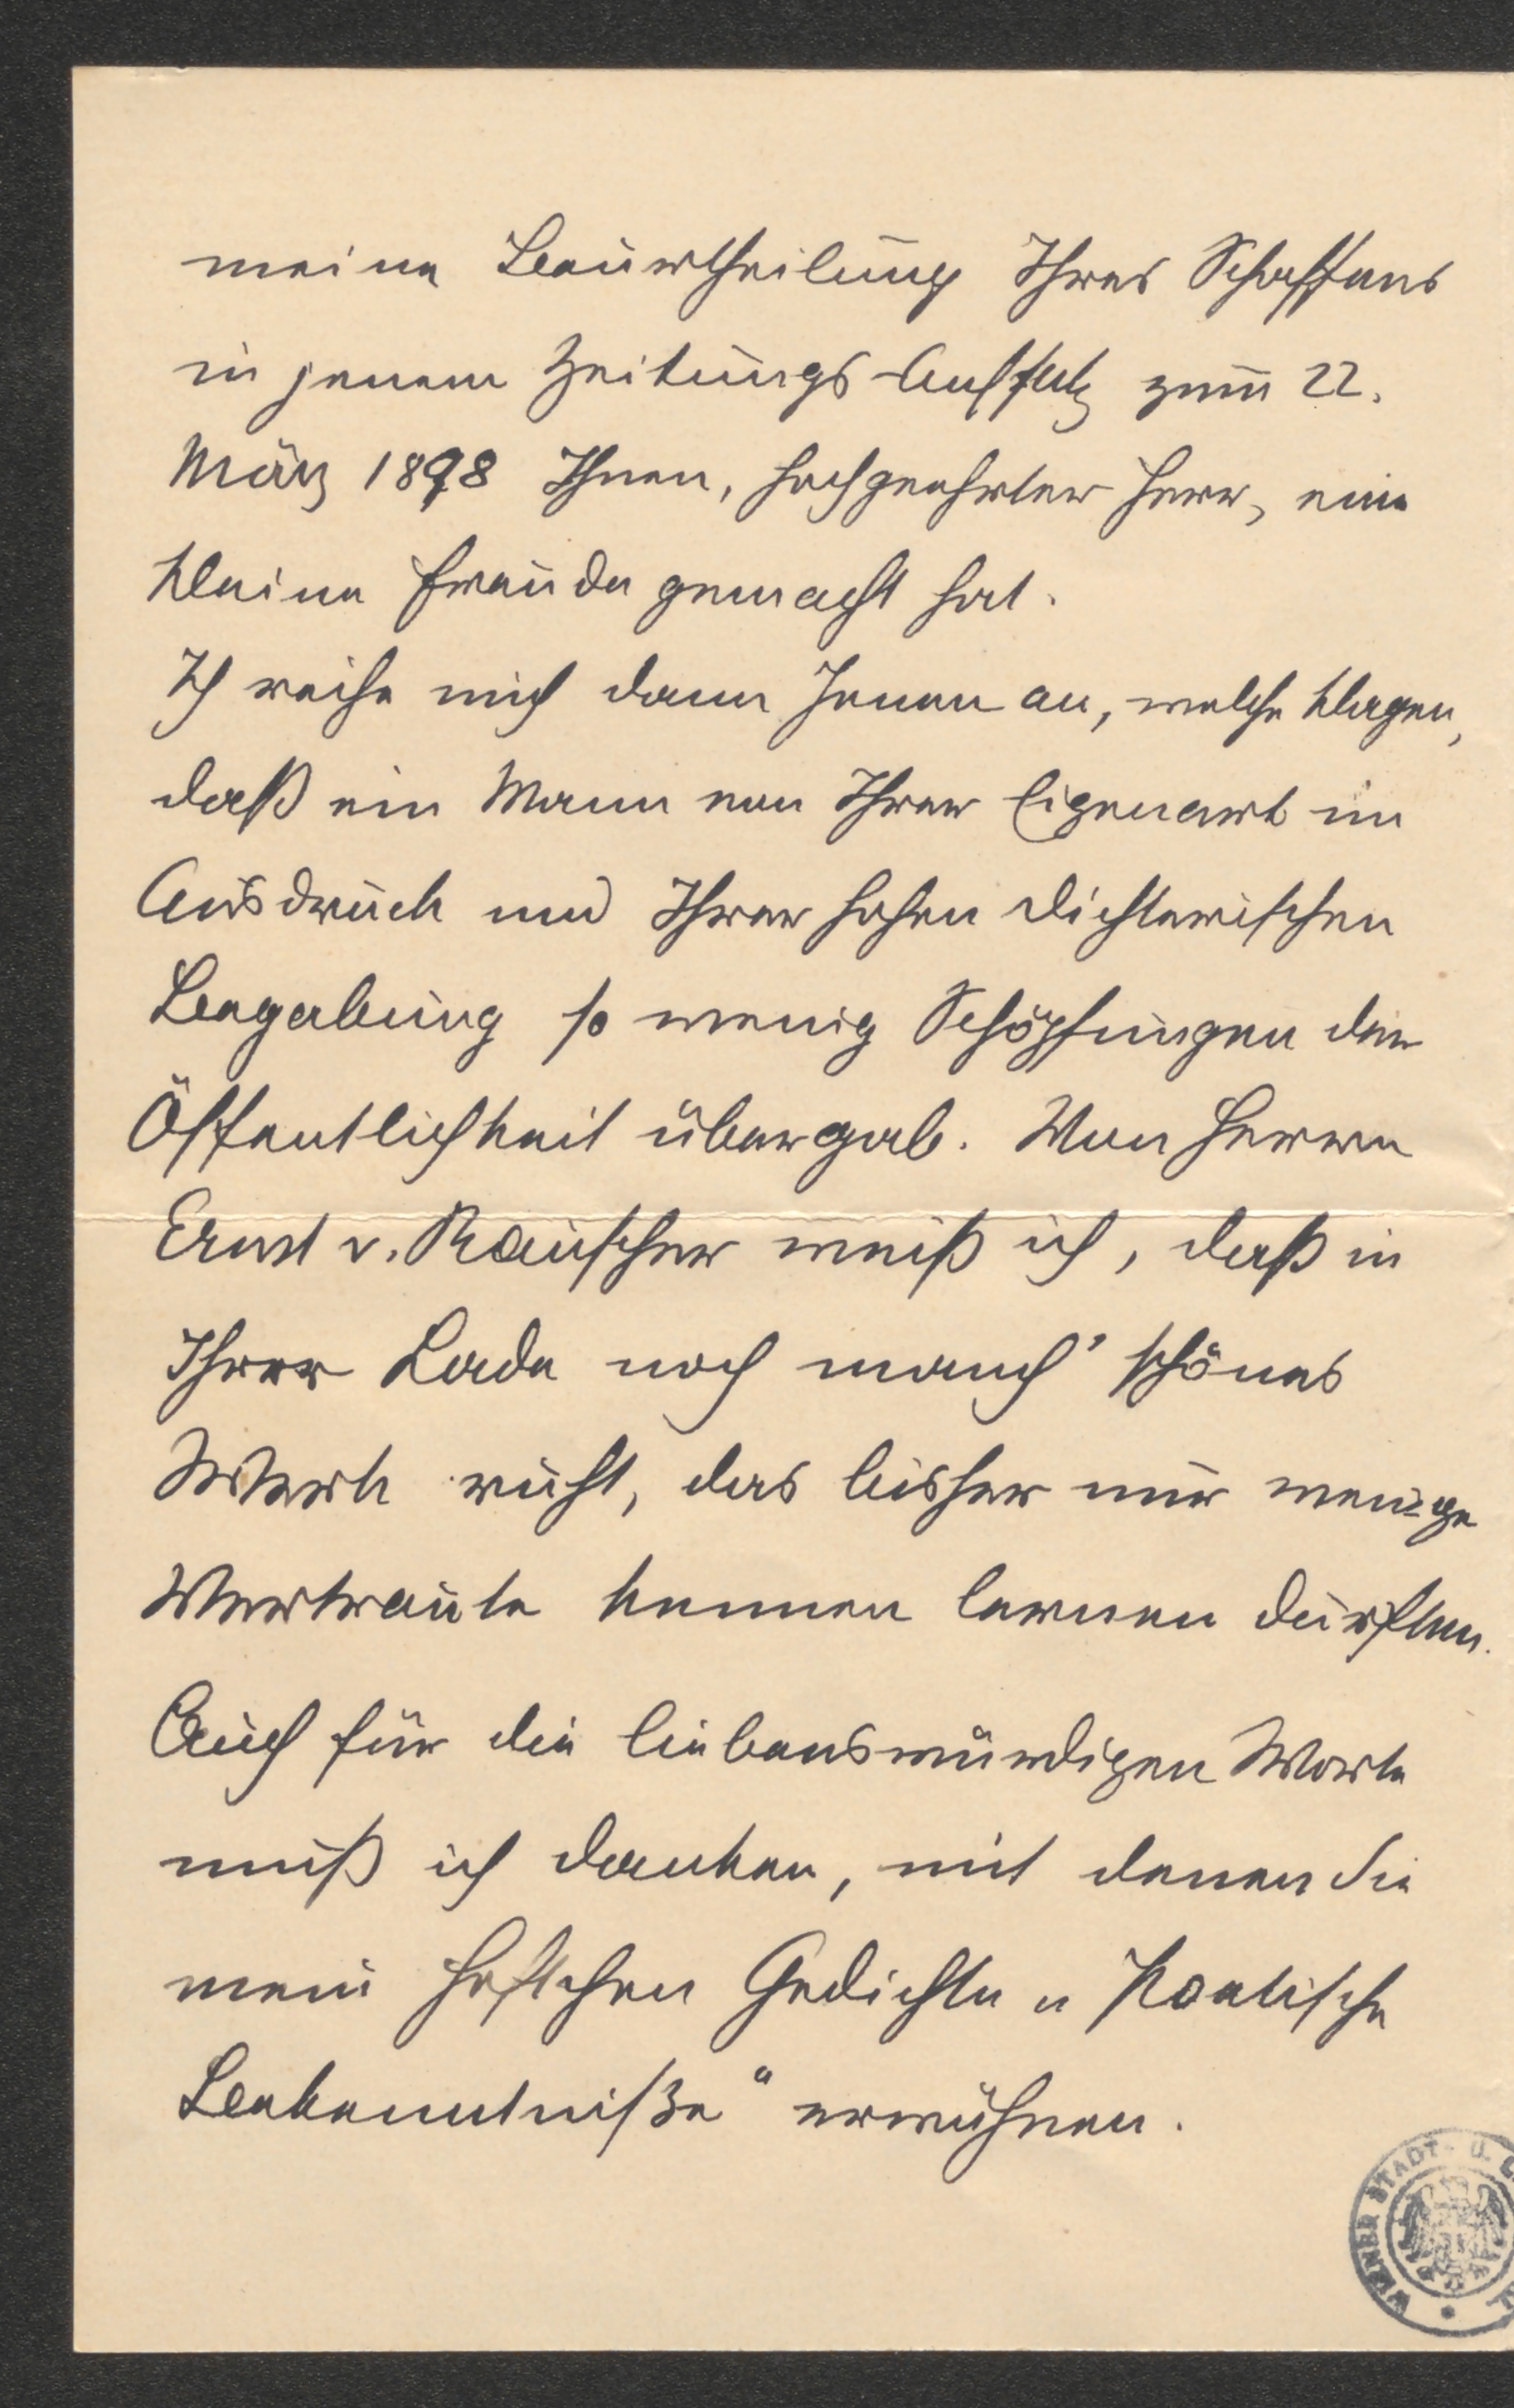 meine Beurtheilung Ihres Schaffens
in jenem Zeitungs-Aufsatz zum 22.
März 1898 Ihnen, hochgeehrter Herr, eine
kleine Freude gemacht hat.
Ich reihe mich dann Jenen an, welche klagen,
daß ein Mann von Ihrer Eigenart im
Ausdruck und Ihrer hohen dichterischen
Begabung so wenig Schöpfungen der
Öffentlichkeit übergab. Von Herrn
Ernst v. Rauscher weiß ich, daß in
Ihrer Lade noch manch' schönes
Werk ruht, das bisher nur wenige
Vertraute kennen lernen durften.
Auch für die liebenswürdigen Worte
muß ich danken, mit denen Sie
mein Heftchen Gedichte „Poetische
Bekenntniße“ erwähnen.
WIENER STADT- U.